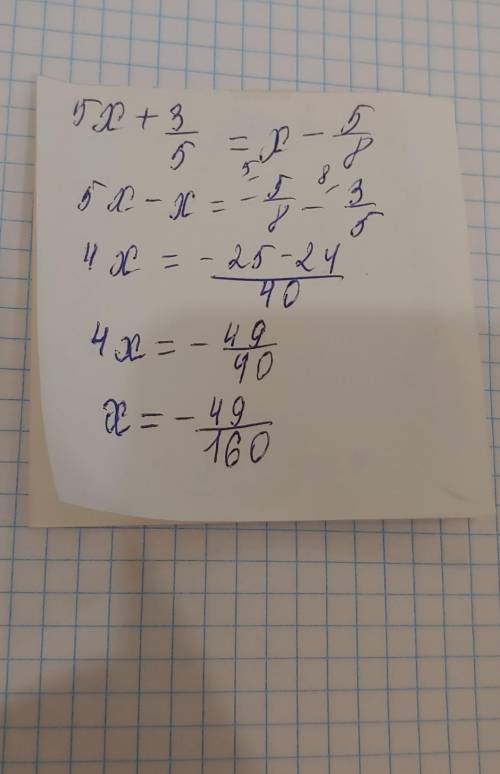 5x + 3/5 = x - 5/8
5x - x = - 5/8 - 3/5
4x = - 25 - 24 / 40
4x = - 49/40
x = - 49/160